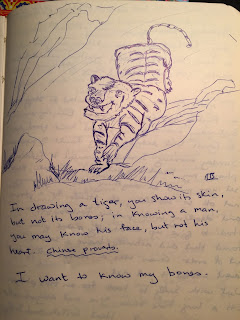 In drawing a tiger, you show its skin,
but not its bones; in knowing a man,
you may know his face, but not his
heart. chinese proverb.
I want to know my bones.